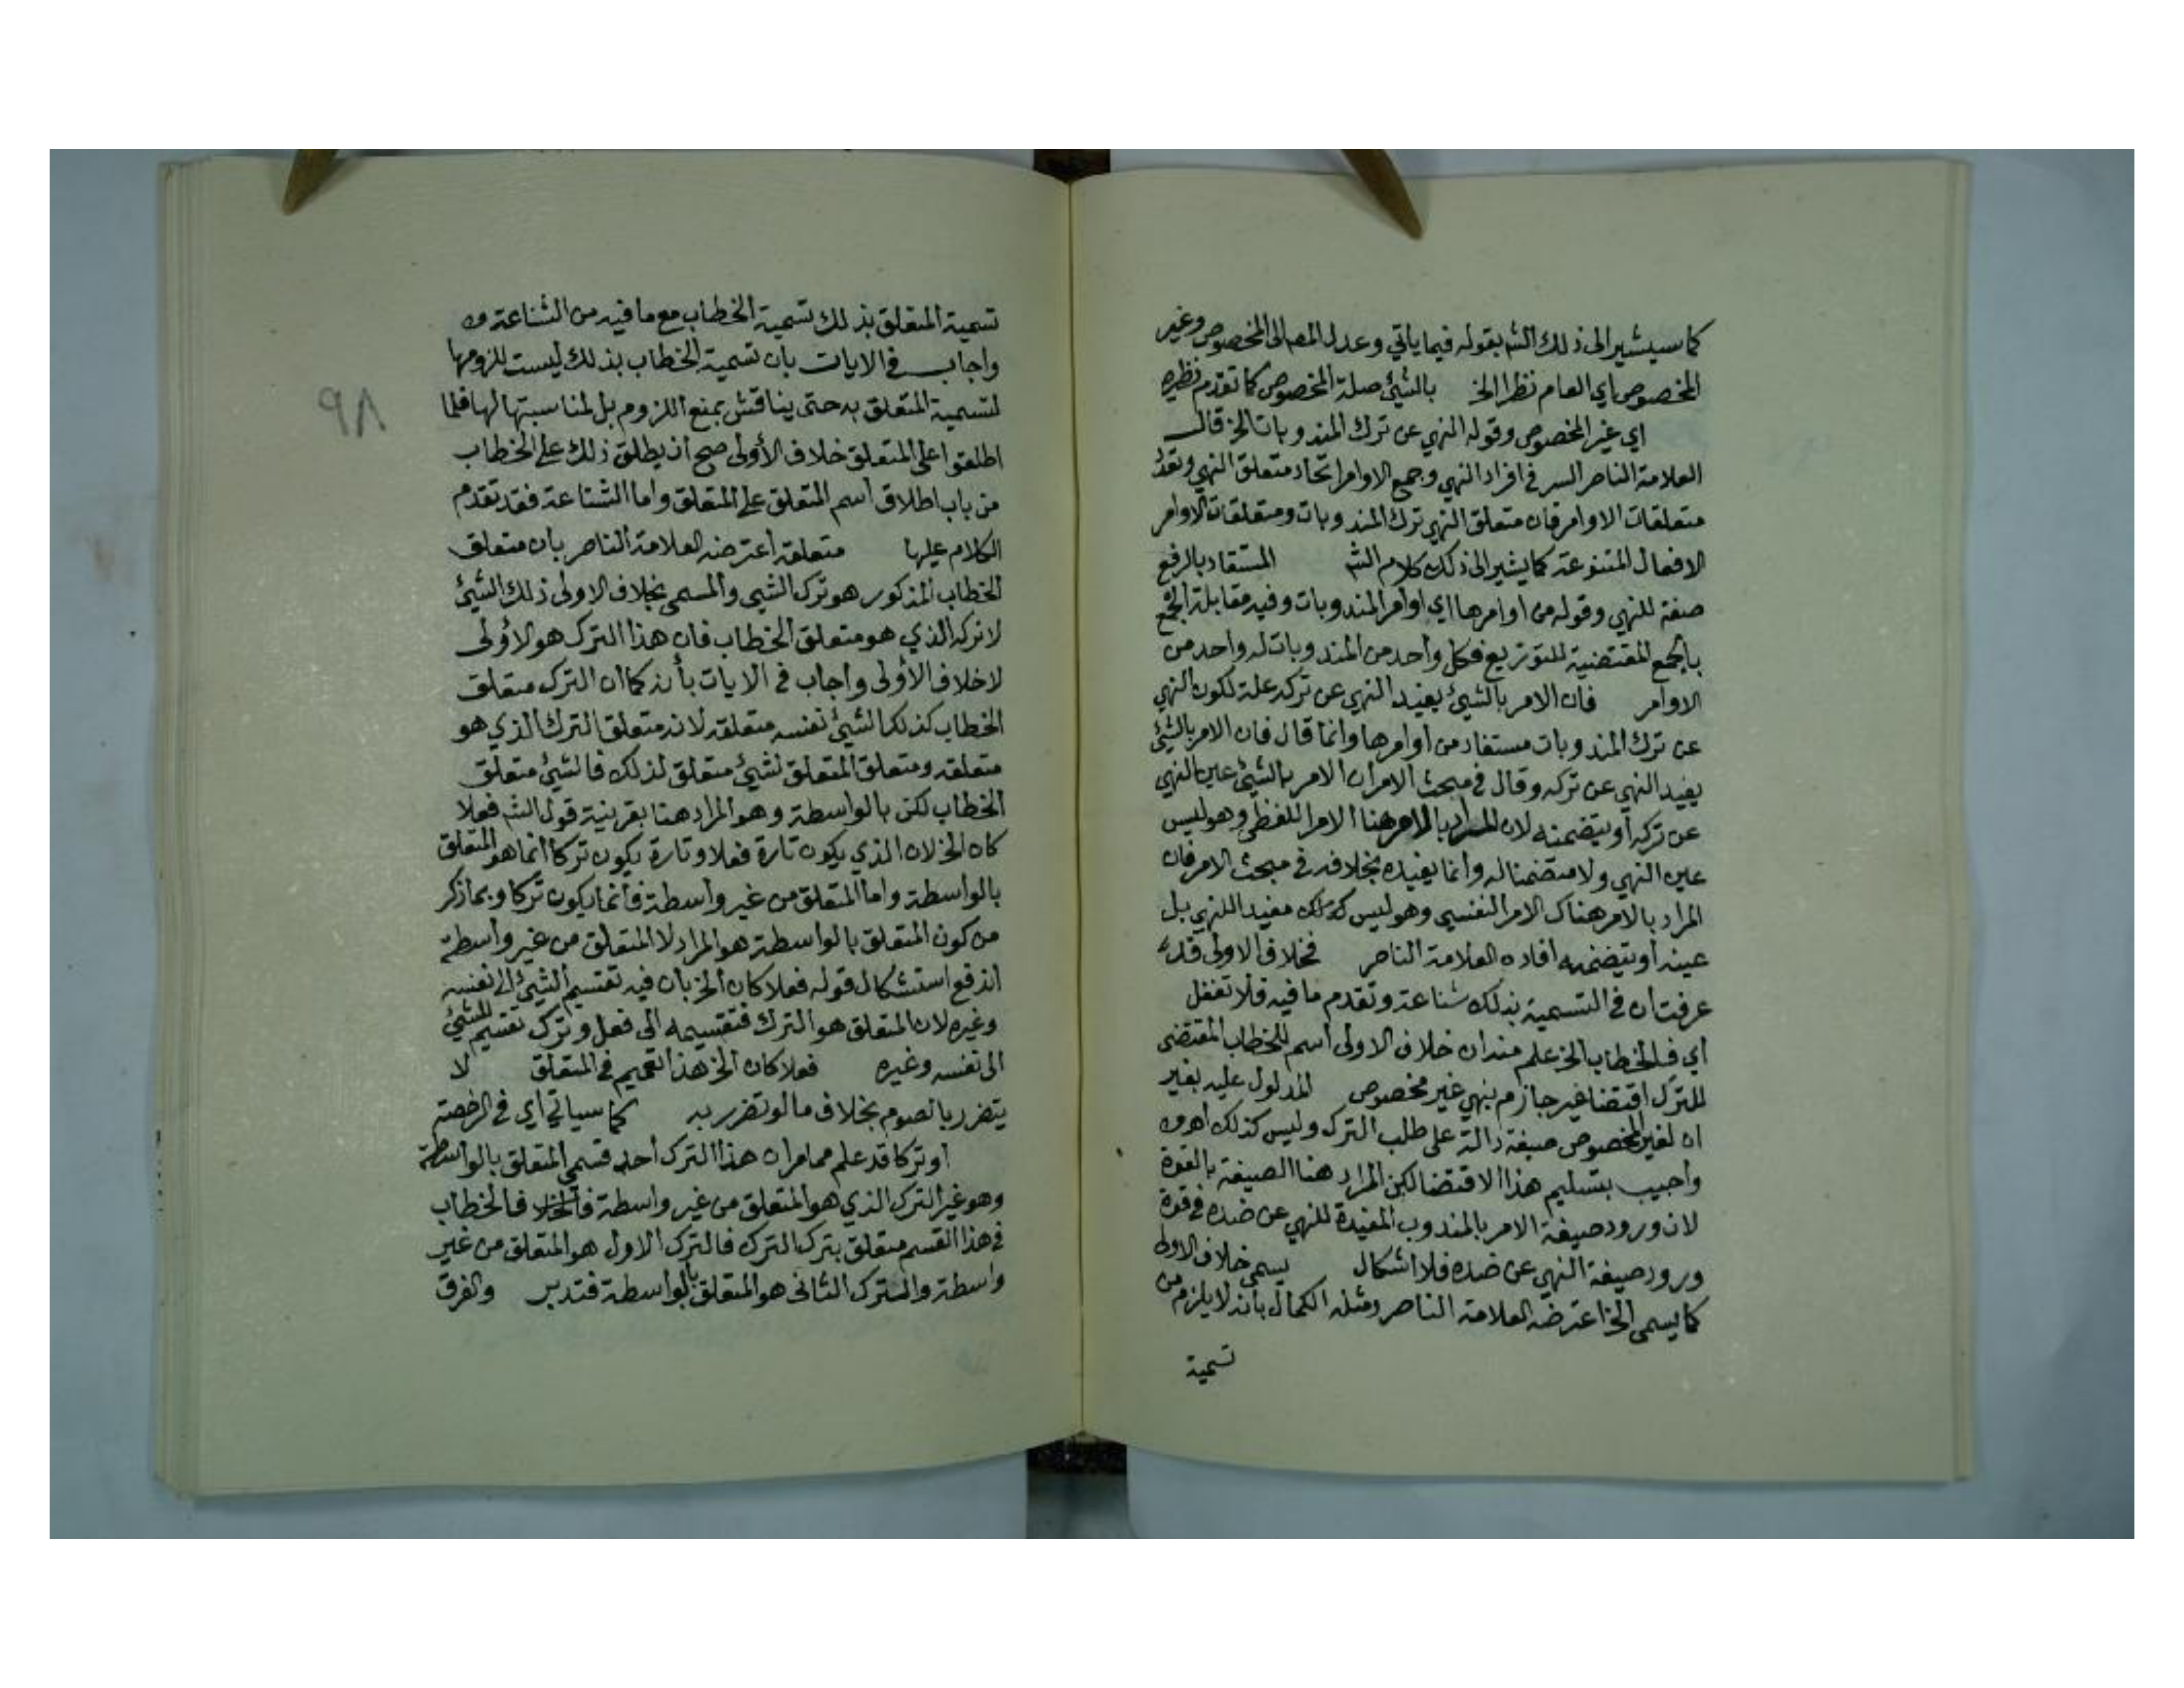 كما سيشير الى ذلك الشه بقوله فيما ياتي وعدل المصه الى المخصوص وغير
المخصوص اي العام نظرا الخ بالشيئ صلة المخصوص كما تقدم نظيره
اي غير المخصوص وقوله النهي عن ترك المندوبات الخ قال
العلامة الناصر السر في افراد النهي وجمع الاوامر اتحاد متعلق النهي وتعدد
متعلقات الاوامر فان متعلق النهي ترك المندوبات ومتعلقات الاوامر
الافعال المتنوعة كما يشير الى ذلك كلام الشه المستفاد بالرفع
صفة للنهي وقوله من اوامرها اي اوامر المندوبات وفيه مقابلة الجمع
بالجمع المقتضية للتوزيع فكل واحد من المندوبات له واحد من
الاوامر فان الامر بالشيئ يفيد النهي عن تركه علة لكون النهي
عن ترك المندوبات مستفاد من اوامرها وانما قال فان الامر بالشيئ
يفيد النهي عن تركه وقال في مبحث الامر ان الامر بالشيئ عين النهي
عن تركه أو يتضمنه لان المراد بالامر هنا الامر اللفظي وهو ليس
عين النهي ولا متضمنا له وانما يفيده بخلافه في مبحث الامر فان
المراد بالامر هناك الامر النفسي وهو ليس كذلك مفيد للنهي بل
عينه أو يتضمنه افاده العلامة الناصر فخلاف الاولى قد
عرفت ان في التسمية بذلك شناعة وتقدم ما فيه فلا تغفل
أي فالخطاب الخ علم منه ان خلاف الاولى اسم للخطاب المقتضى
للترك اقتضا غير جازم بنهي غير مخصوص المدلول عليه بغير
ان لغير المخصوص صيغة دالة على طلب الترك وليس كذلك اهـ وه
وأجيب بتسليم هذا الاقتضا لكن المراد هنا الصيغة بالقوة
لان ورود صيغة الامر بالمندوب المفيدة للنهي عن ضده في قوة
ورود صيغة النهي عن ضده فلا اشكال يسمى خلاف الاولى
كما يسمى الخ اعترضه العلامة الناصر ومثله الكمال بأنه لا يلزم من
تسمية
تسمية المتعلق بذلك تسمية الخطاب مع ما فيه من الشناعة وه
واجاب في الايات بان تسمية الخطاب بذلك ليست للزومها
لتسمية المتعلق به حتى يناقش بمنع اللزوم بل لمناسبتها لها فلما
اطلقوا على المتعلق خلاف الأولى صح ان يطلق ذلك على الخطاب
من باب اطلاق اسم المتعلق على المتعلق واما الشناعة فقد تقدم
الكلام عليها متعلقة اعترضه العلامة الناصر بان متعلق
الخطاب المذكور هو ترك الشيى والمسمى بخلاف الاولى ذلك الشيئ
لا تركه الذي هو متعلق الخطاب فان هذا الترك هو الأولى
لا خلاف الأولى وأجاب في الايات بأنه كما ان الترك متعلق
الخطاب كذلك الشيئ نفسه متعلقه لانه متعلق الترك الذي هو
متعلقه ومتعلق المتعلق لشيئ متعلق لذلك فالشيئ متعلق
الخطاب لكن بالواسطة وهو المراد هنا بقرينة قول الشه فعلا
كان الخ لان الذي يكون تارة فعلا وتارة يكون تركا انما هو المتعلق
بالواسطة واما المتعلق من غير واسطة فأنما يكون تركا وبما ذكر
من كون المتعلق بالواسطة هو المراد لا المتعلق من غير واسطة
اندفع استشكال قوله فعلا كان الخ بان فيه تقسيم الشيئ الى نفسه
وغيره لان المتعلق هو الترك فتقسيمه الى فعل وترك تقسيم للشيئ
الى نفسه وغيره فعلا كان الخ هذا تعميم في المتعلق لا
يتضرر بالصوم بخلاف ما لو تضرر به كما سياتي اي في الرخصة
أو تركا قد علم مما مر ان هذا الترك أحد قسمي المتعلق بالواسطة
وهو غير الترك الذي هو المتعلق من غير واسطة فالخطاب
في هذا القسم متعلق بترك الترك فالترك الاول هو المتعلق من غير
واسطة والترك الثاني هو المتعلق بالواسطة فتدبر والفرق
٩٨